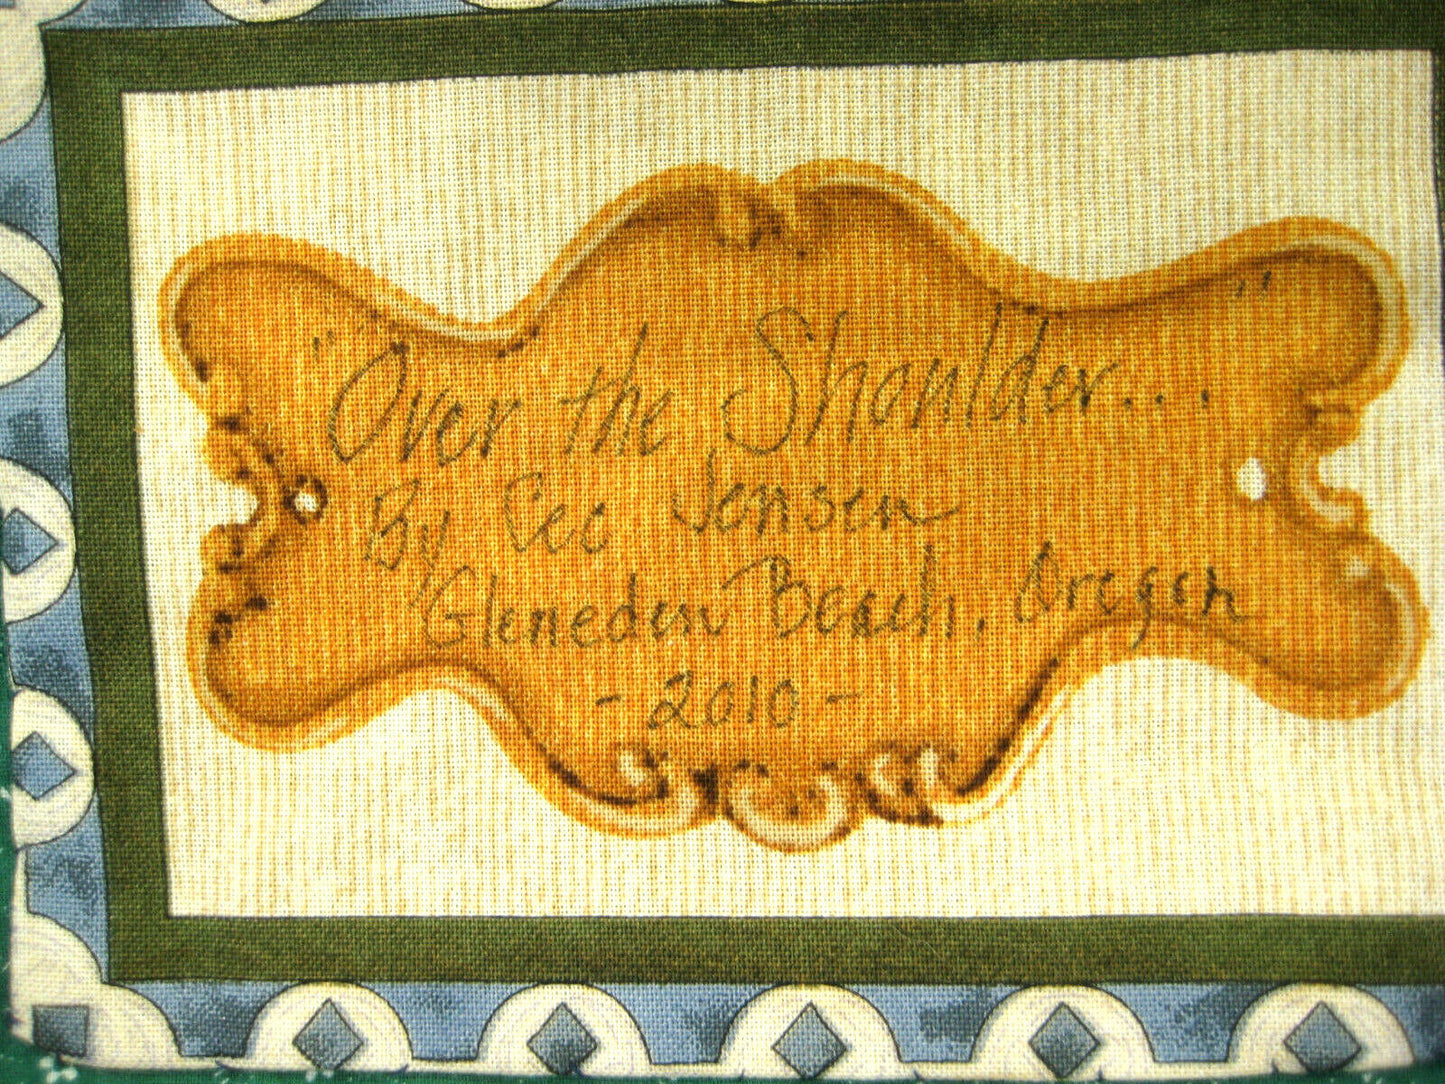 "Over the Shoulder..."
By Cec Jensen
Gleneden Beach, Oregon
-2010-